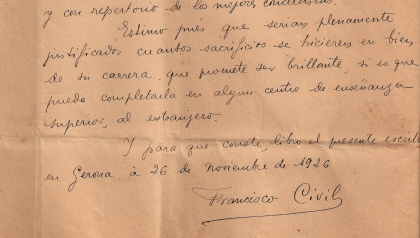 y con repertorio de los mejores concertistas.
Estimo pués que serian plenamente
justificados cuantos sacrificios se hicieren en bien
de su carrera, que promete ser brillante, si es que
pueda completarla en algun centro de enseñanza
superior, al extranjero.
Y para que conste, libro el presente escrito
en Gerona à 26 de Noviembre de 1926
Francisco Civil